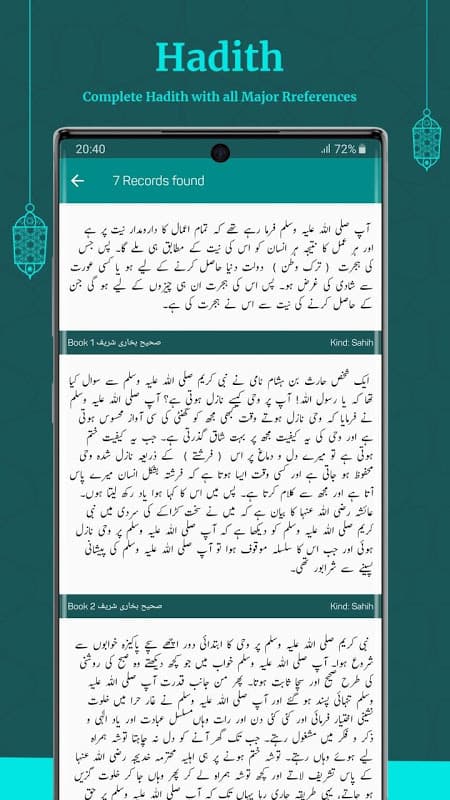 Hadith
Complete Hadith with all Major Rreferences
20:40
72%
7 Records found
آپ صلی اللہ علیہ وسلم فرما رہے تھے کہ تمام اعمال کا دارومدار نیت پر ہے
اور ہر عمل کا نتیجہ ہر انسان کو اس کی نیت کے مطابق ہی ملے گا۔ پس جس
کی ہجرت ( ترک وطن ) دولت دنیا حاصل کرنے کے لیے ہو یا کسی عورت
سے شادی کی غرض ہو۔ پس اس کی ہجرت ان ہی چیزوں کے لیے ہو گی جن
کے حاصل کرنے کی نیت سے اس نے ہجرت کی ہے۔
Book 1 صحیح بخاری شریف Kind: Sahih
ایک شخص حارث بن ہشام نامی نے نبی کریم صلی اللہ علیہ وسلم سے سوال کیا
تھا کہ یا رسول اللہ! آپ پر وحی کیسے نازل ہوتی ہے؟ آپ صلی اللہ علیہ وسلم
نے فرمایا کہ وحی نازل ہوتے وقت کبھی مجھ کو گھنٹی کی سی آواز محسوس ہوتی
ہے اور وحی کی یہ کیفیت مجھ پر بہت شاق گذرتی ہے۔ جب یہ کیفیت ختم
ہوتی ہے تو میرے دل و دماغ پر اس ( فرشتے ) کے ذریعہ نازل شدہ وحی
محفوظ ہو جاتی ہے اور کسی وقت ایسا ہوتا ہے کہ فرشتہ بشکل انسان میرے پاس
آتا ہے اور مجھ سے کلام کرتا ہے۔ پس میں اس کا کہا ہوا یاد رکھ لیتا ہوں۔
عائشہ رضی اللہ عنہا کا بیان ہے کہ میں نے سخت کڑاکے کی سردی میں نبی
کریم صلی اللہ علیہ وسلم کو دیکھا ہے کہ آپ صلی اللہ علیہ وسلم پر وحی نازل
ہوئی اور جب اس کا سلسلہ موقوف ہوا تو آپ صلی اللہ علیہ وسلم کی پیشانی
پسینے سے شرابور تھی۔
Book 2 صحیح بخاری شریف Kind: Sahih
نبی کریم صلی اللہ علیہ وسلم پر وحی کا ابتدائی دور اچھے سچے پاکیزہ خوابوں سے
شروع ہوا۔ آپ صلی اللہ علیہ وسلم خواب میں جو کچھ دیکھتے وہ صبح کی روشنی
کی طرح صحیح اور سچا ثابت ہوتا۔ پھر من جانب قدرت آپ صلی اللہ علیہ
وسلم تنہائی پسند ہو گئے اور آپ صلی اللہ علیہ وسلم نے غار حرا میں خلوت
نشینی اختیار فرمائی اور کئی کئی دن اور رات وہاں مسلسل عبادت اور یاد الٰہی و
ذکر و فکر میں مشغول رہتے۔ جب تک گھر آنے کو دل نہ چاہتا توشہ ہمراہ
لیے ہوئے وہاں رہتے۔ توشہ ختم ہونے پر ہی اہلیہ محترمہ خدیجہ رضی اللہ عنہا
کے پاس تشریف لاتے اور کچھ توشہ ہمراہ لے کر پھر وہاں جا کر خلوت گزیں
ہو جاتے، یہی طریقہ جاری رہا یہاں تک کہ آپ صلی اللہ علیہ وسلم پر حق